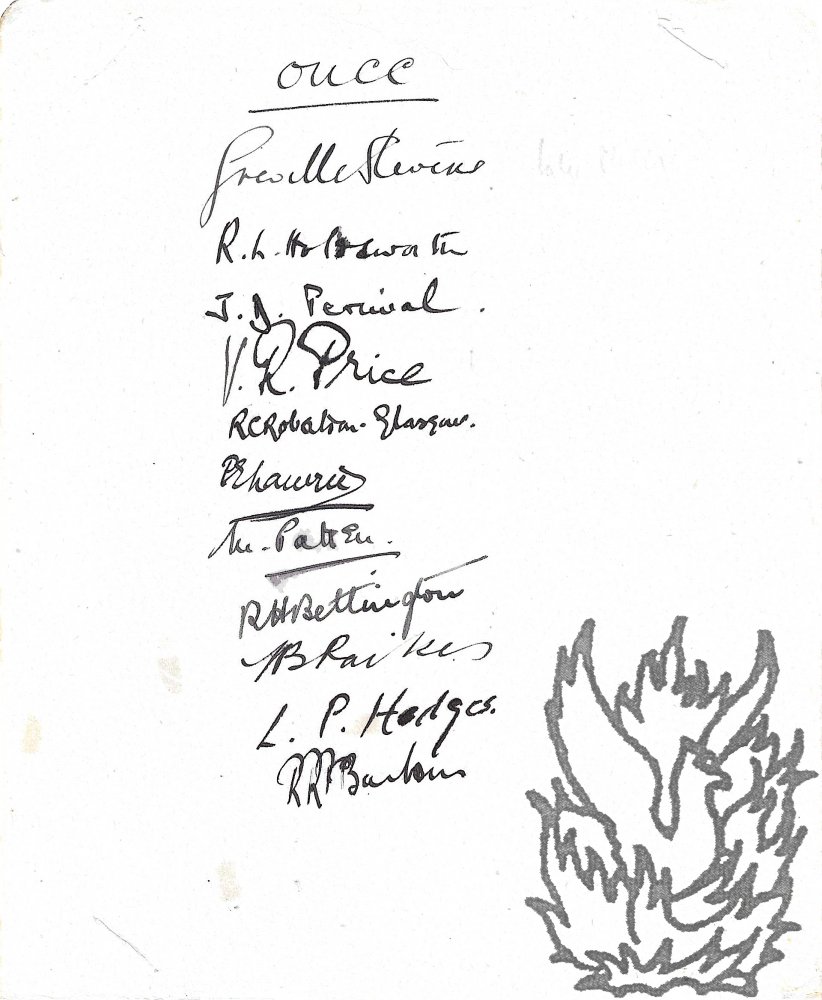 OUCC
Greville Stevens
R. L. Holdsworth
J. D. Percival.
V. R. Price
RC Robertson-Glasgow.
P E Lawrie
M. Patten.
RH Bettington
TB Raikes
L. P. Hedges.